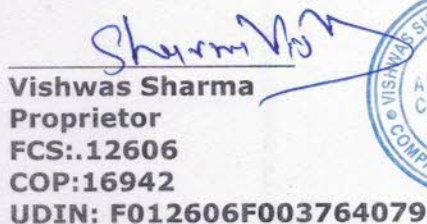 Vishwas Sharma
Proprietor
FCS:.12606
COP:16942
UDIN: F012606F003764079